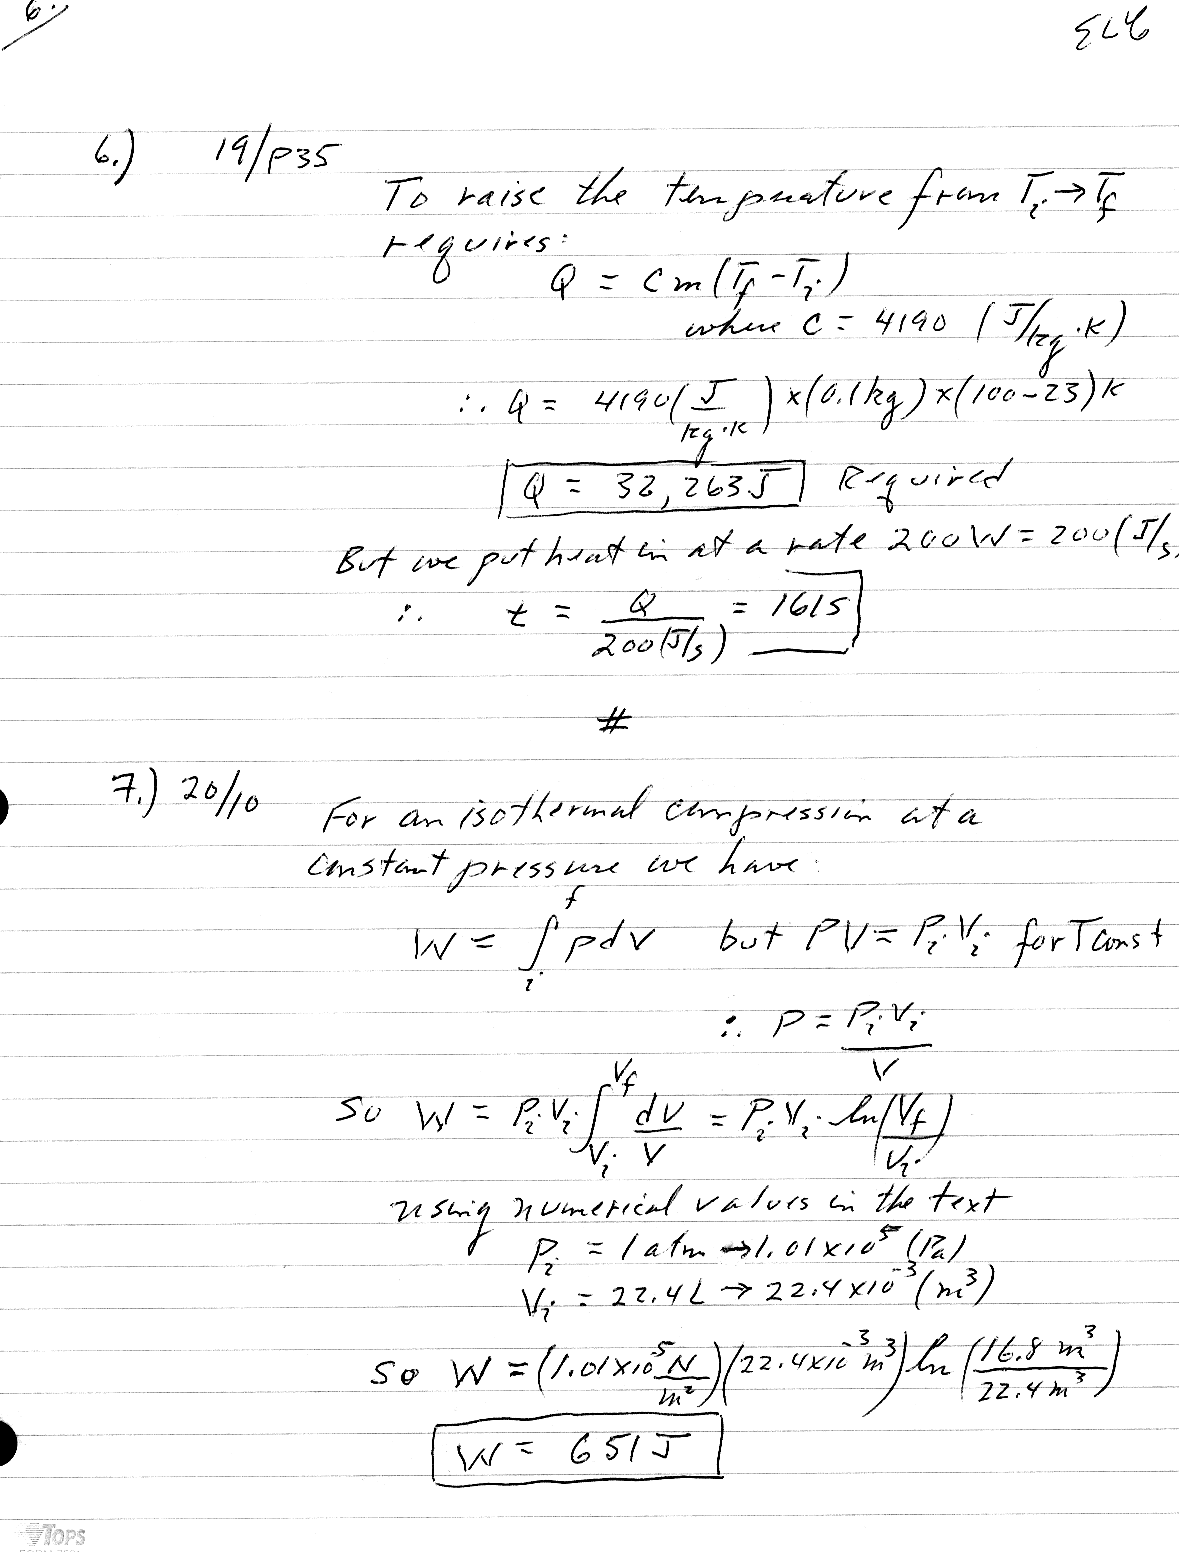 6.
ELY
6.) 19/P35
To raise the temperature from Tᵢ→T_f
requires:
Q = cm(T_f - Tᵢ)
where C = 4190 (J/kg·K)
∴ Q = 4190(J/kg·K)×(0.1kg)×(100-23)K
Q = 32,263J Required
But we put heat in at a rate 200W = 200(J/s
∴ t = Q/200(J/s) = 161s
#
7.) 20/10
For an isothermal compression at a
constant pressure we have:
W = ∫ᵢ^f pdV but PV = PᵢVᵢ for T const
∴ P = PᵢVᵢ/V
So W = PᵢVᵢ∫_Vᵢ^V_f dV/V = PᵢVᵢ ln(V_f/Vᵢ)
using numerical values in the text
Pᵢ = 1 atm → 1.01×10⁵ (Pa)
Vᵢ = 22.4L → 22.4×10⁻³ (m³)
So W = (1.01×10⁵ N/m²)(22.4×10⁻³ m³) ln(16.8 m³/22.4 m³)
W = 651J
TOPS